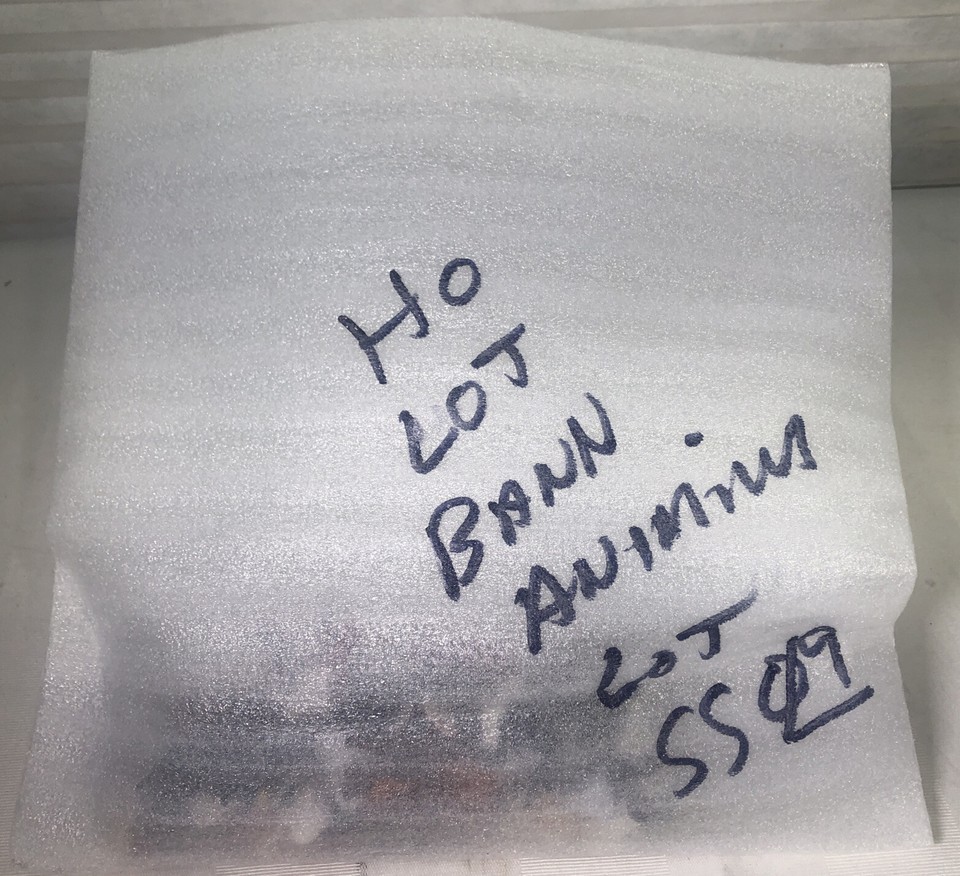 HO
LOT
BANN
ANIMILS
LOT
SS09